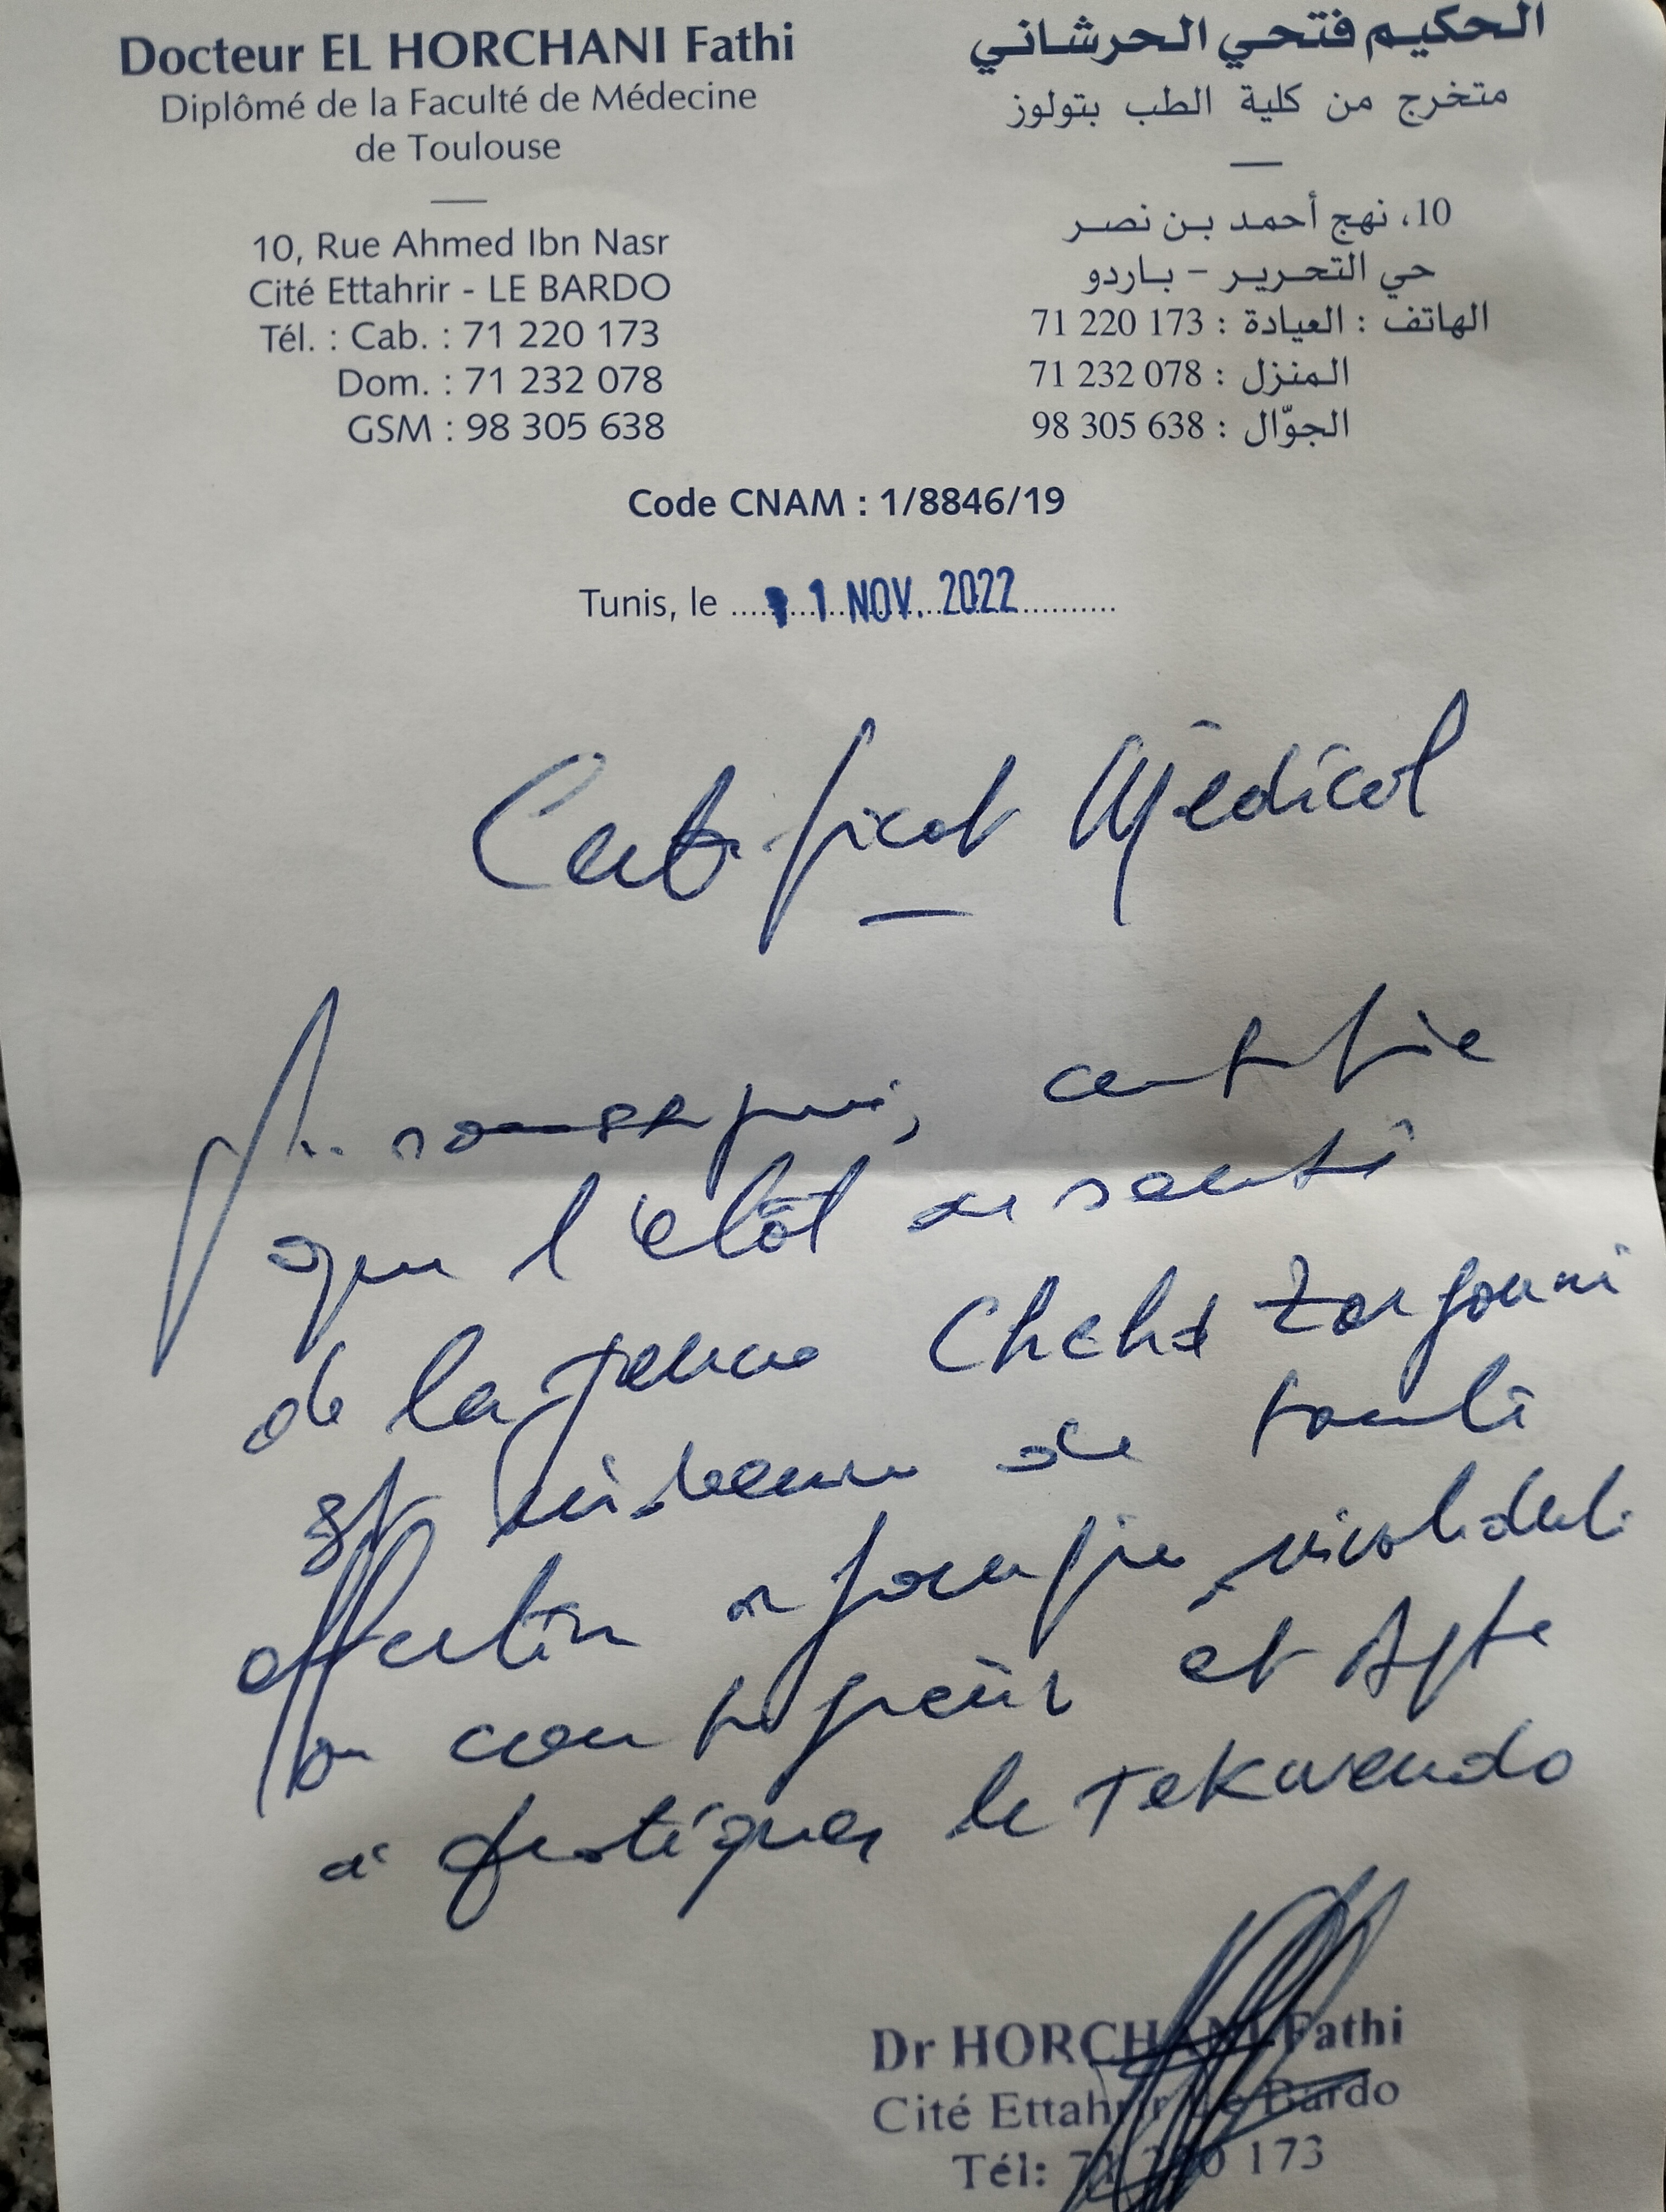 Docteur EL HORCHANI Fathi
Diplômé de la Faculté de Médecine
de Toulouse
10, Rue Ahmed Ibn Nasr
Cité Ettahrir - LE BARDO
Tél. : Cab. : 71 220 173
Dom. : 71 232 078
GSM : 98 305 638
الحكيم فتحي الحرشاني
متخرج من كلية الطب بتولوز
10، نهج أحمد بن نصر
حي التحرير - باردو
الهاتف : العيادة : 173 220 71
المنزل : 078 232 71
الجوّال : 638 305 98
Code CNAM : 1/8846/19
Tunis, le 1 NOV. 2022
Certificat Médical
certifie
que l'état de santé
de la jeune Chehd Zargouni
est de toute
affection
ou contagieuse et Apte
à pratiquer le Tekwendo
Dr HORCHANI Fathi
Cité Ettahrir Le Bardo
Tél: 71 220 173